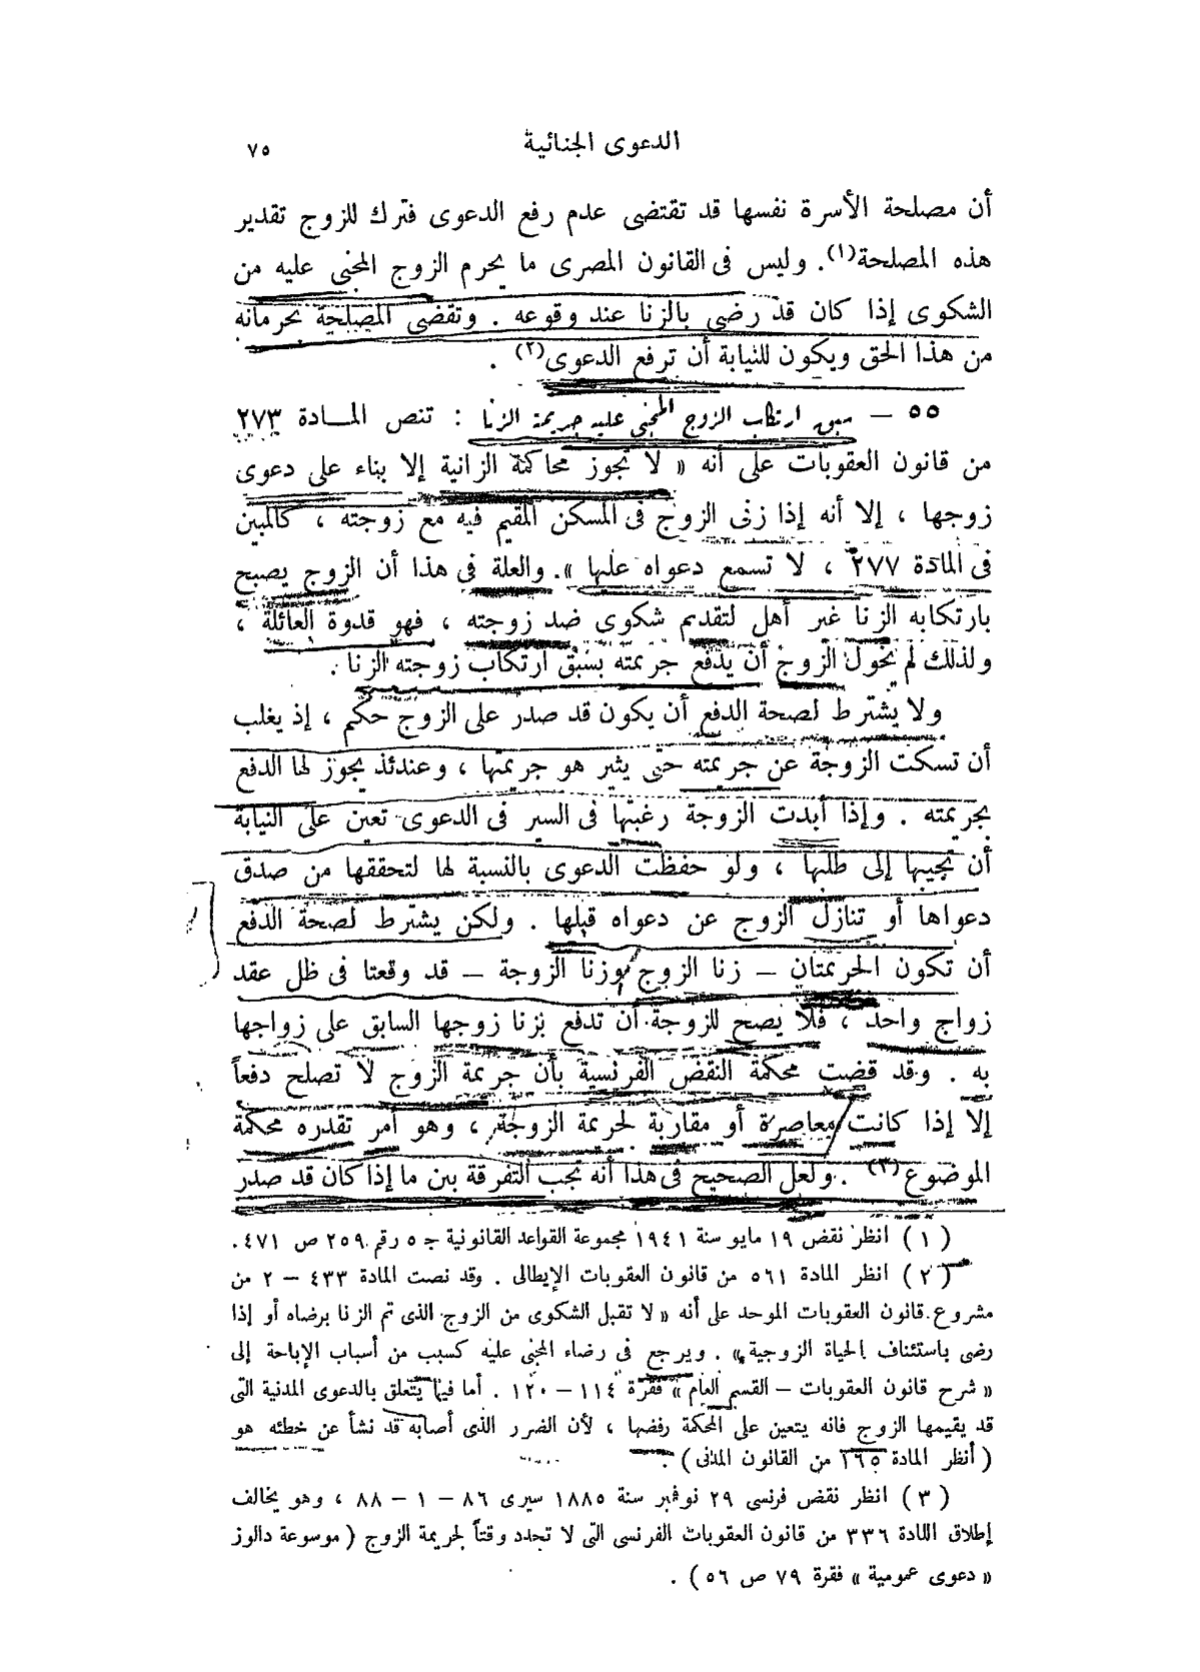 الدعوى الجنائية ٧٥
أن مصلحة الأسرة نفسها قد تقتضى عدم رفع الدعوى فترك للزوج تقدير
هذه المصلحة(١). وليس فى القانون المصرى ما يحرم الزوج المجنى عليه من
الشكوى إذا كان قد رضى بالزنا عند وقوعه . وتقضى المصلحة بحرمانه
من هذا الحق ويكون للنيابة أن ترفع الدعوى(٢) .
٥٥ – سبق ارتكاب الزوج المجنى عليه جريمة الزنا : تنص المادة ٢٧٣
من قانون العقوبات على أنه « لا تجوز محاكمة الزانية إلا بناء على دعوى
زوجها ، إلا أنه إذا زنى الزوج فى المسكن المقيم فيه مع زوجته ، كالمبين
فى المادة ٢٧٧ ، لا تسمع دعواه عليها ». والعلة فى هذا أن الزوج يصبح
بارتكابه الزنا غير أهل لتقديم شكوى ضد زوجته ، فهو قدوة العائلة ،
ولذلك لم يخول الزوج أن يدفع جريمته بسبق ارتكاب زوجته الزنا .
ولا يشترط لصحة الدفع أن يكون قد صدر على الزوج حكم ، إذ يغلب
أن تسكت الزوجة عن جريمته حتى يثير هو جريمتها ، وعندئذ يجوز لها الدفع
بجريمته . وإذا أبدت الزوجة رغبتها فى السير فى الدعوى تعين على النيابة
أن تجيبها إلى طلبها ، ولو حفظت الدعوى بالنسبة لها لتحققها من صدق
دعواها أو تنازل الزوج عن دعواه قبلها . ولكن يشترط لصحة الدفع
أن تكون الجريمتان – زنا الزوج وزنا الزوجة – قد وقعتا فى ظل عقد
زواج واحد ، فلا يصح للزوجة أن تدفع بزنا زوجها السابق على زواجها
به . وقد قضت محكمة النقض الفرنسية بأن جريمة الزوج لا تصلح دفعاً
إلا إذا كانت معاصرة أو مقاربة لجريمة الزوجة ، وهو أمر تقدره محكمة
الموضوع(٣) . ولعل الصحيح فى هذا أنه تجب التفرقة بين ما إذا كان قد صدر
( ١ ) انظر نقض ١٩ مايو سنة ١٩٤١ مجموعة القواعد القانونية ج ٥ رقم ٢٥٩ ص ٤٧١ .
( ٢ ) انظر المادة ٥٦١ من قانون العقوبات الإيطالى . وقد نصت المادة ٤٣٣ – ٢ من
مشروع قانون العقوبات الموحد على أنه « لا تقبل الشكوى من الزوج الذى تم الزنا برضاه أو إذا
رضى باستئناف الحياة الزوجية » . ويرجع فى رضاء المجنى عليه كسبب من أسباب الإباحة إلى
« شرح قانون العقوبات – القسم العام » فقرة ١١٤ – ١٢٠ . أما فيما يتعلق بالدعوى المدنية التى
قد يقيمها الزوج فانه يتعين على المحكمة رفضها ، لأن الضرر الذى أصابه قد نشأ عن خطئه هو
( أنظر المادة ١٦٥ من القانون المدنى ) .
( ٣ ) انظر نقض فرنسى ٢٩ نوفمبر سنة ١٨٨٥ سيرى ٨٦ – ١ – ٨٨ ، وهو يخالف
إطلاق المادة ٣٣٦ من قانون العقوبات الفرنسى التى لا تحدد وقتاً لجريمة الزوج ( موسوعة دالوز
« دعوى عمومية » فقرة ٧٩ ص ٥٦ ) .